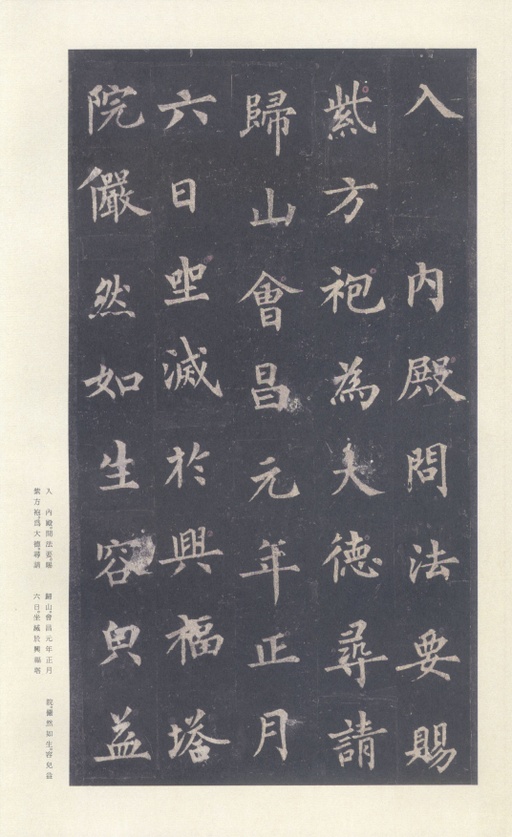 入　內殿問法要賜
紫方袍為大德尋請
歸山會昌元年正月
六日坐滅於興福塔
院儼然如生容皃益
入　內殿問法要賜
紫方袍爲大德尋請
歸山會昌元年正月
六日坐滅於興福塔
院儼然如生容皃益